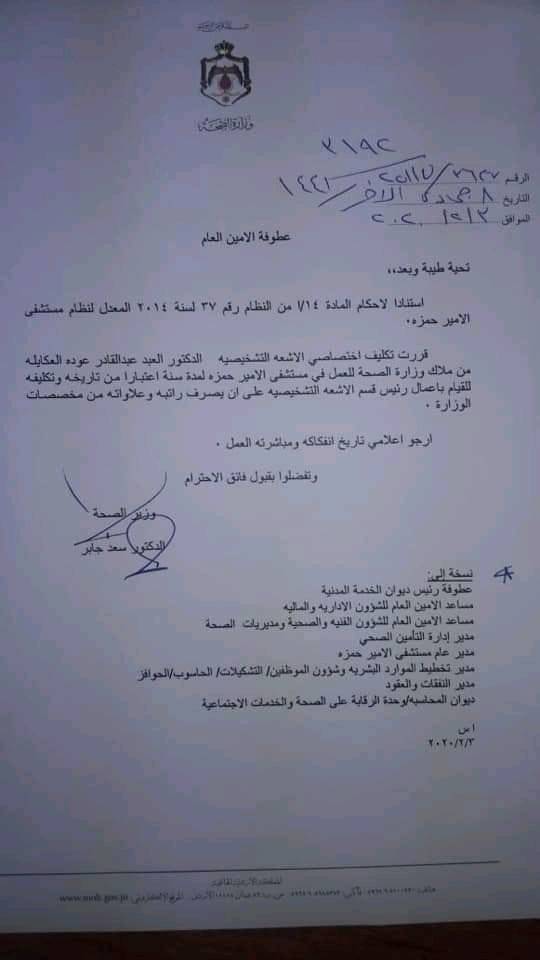 وزارة الصحة
٣١٩٢
الرقم
التاريخ ٨ جمادى الآخر / ١٤٤١
الموافق ٢٠٢٠/٢/٣
عطوفة الامين العام
تحية طيبة وبعد،،
استنادا لاحكام المادة ١٤/ا من النظام رقم ٣٧ لسنة ٢٠١٤ المعدل لنظام مستشفى
الامير حمزه٠
قررت تكليف اختصاصي الاشعه التشخيصيه الدكتور العبد عبدالقادر عوده العكايله
من ملاك وزارة الصحة للعمل في مستشفى الامير حمزه لمدة سنة اعتبارا من تاريخه وتكليفه
للقيام باعمال رئيس قسم الاشعه التشخيصيه على ان يصرف راتبه وعلاواته من مخصصات
الوزارة ٠
ارجو اعلامي تاريخ انفكاكه ومباشرته العمل ٠
وتفضلوا بقبول فائق الاحترام
وزير الصحة
الدكتور سعد جابر
نسخة إلى:
عطوفة رئيس ديوان الخدمة المدنية
مساعد الامين العام للشؤون الاداريه والماليه
مساعد الامين العام للشؤون الفنيه والصحية ومديريات الصحة
مدير إدارة التأمين الصحي
مدير عام مستشفى الامير حمزه
مدير تخطيط الموارد البشريه وشؤون الموظفين/ التشكيلات/ الحاسوب/الحوافز
مدير النفقات والعقود
ديوان المحاسبه/وحدة الرقابة على الصحة والخدمات الاجتماعية
ا س
٢٠٢٠/٢/٣
المملكة الأردنية الهاشمية
الموقع الإلكتروني: www.moh.gov.jo